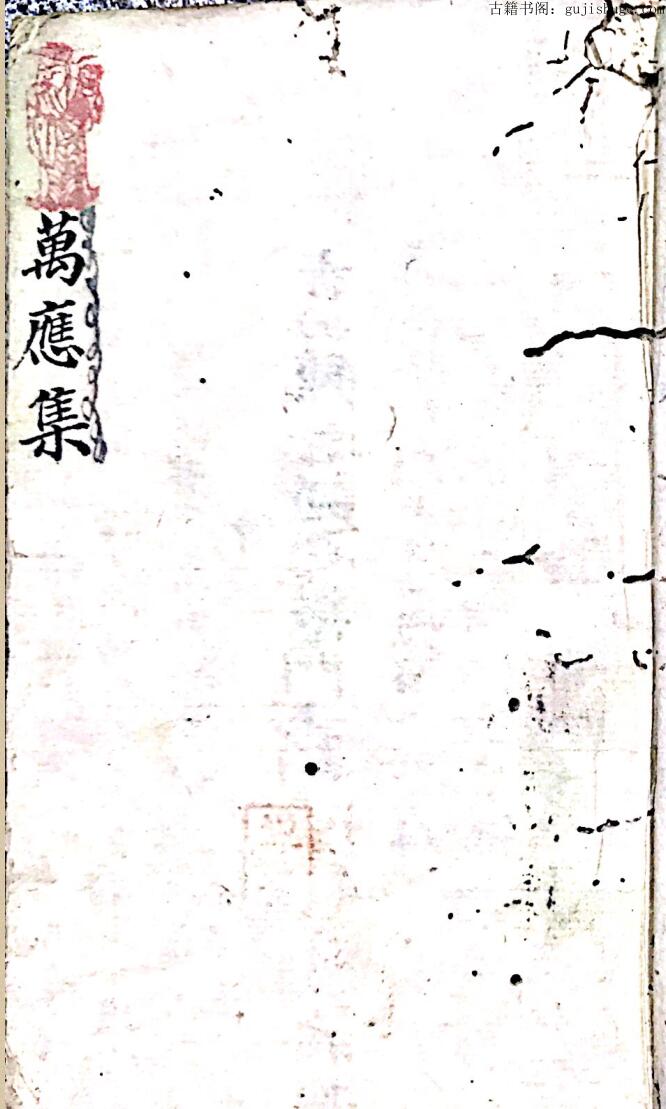 古籍书阁：gujishuge.com
萬應集